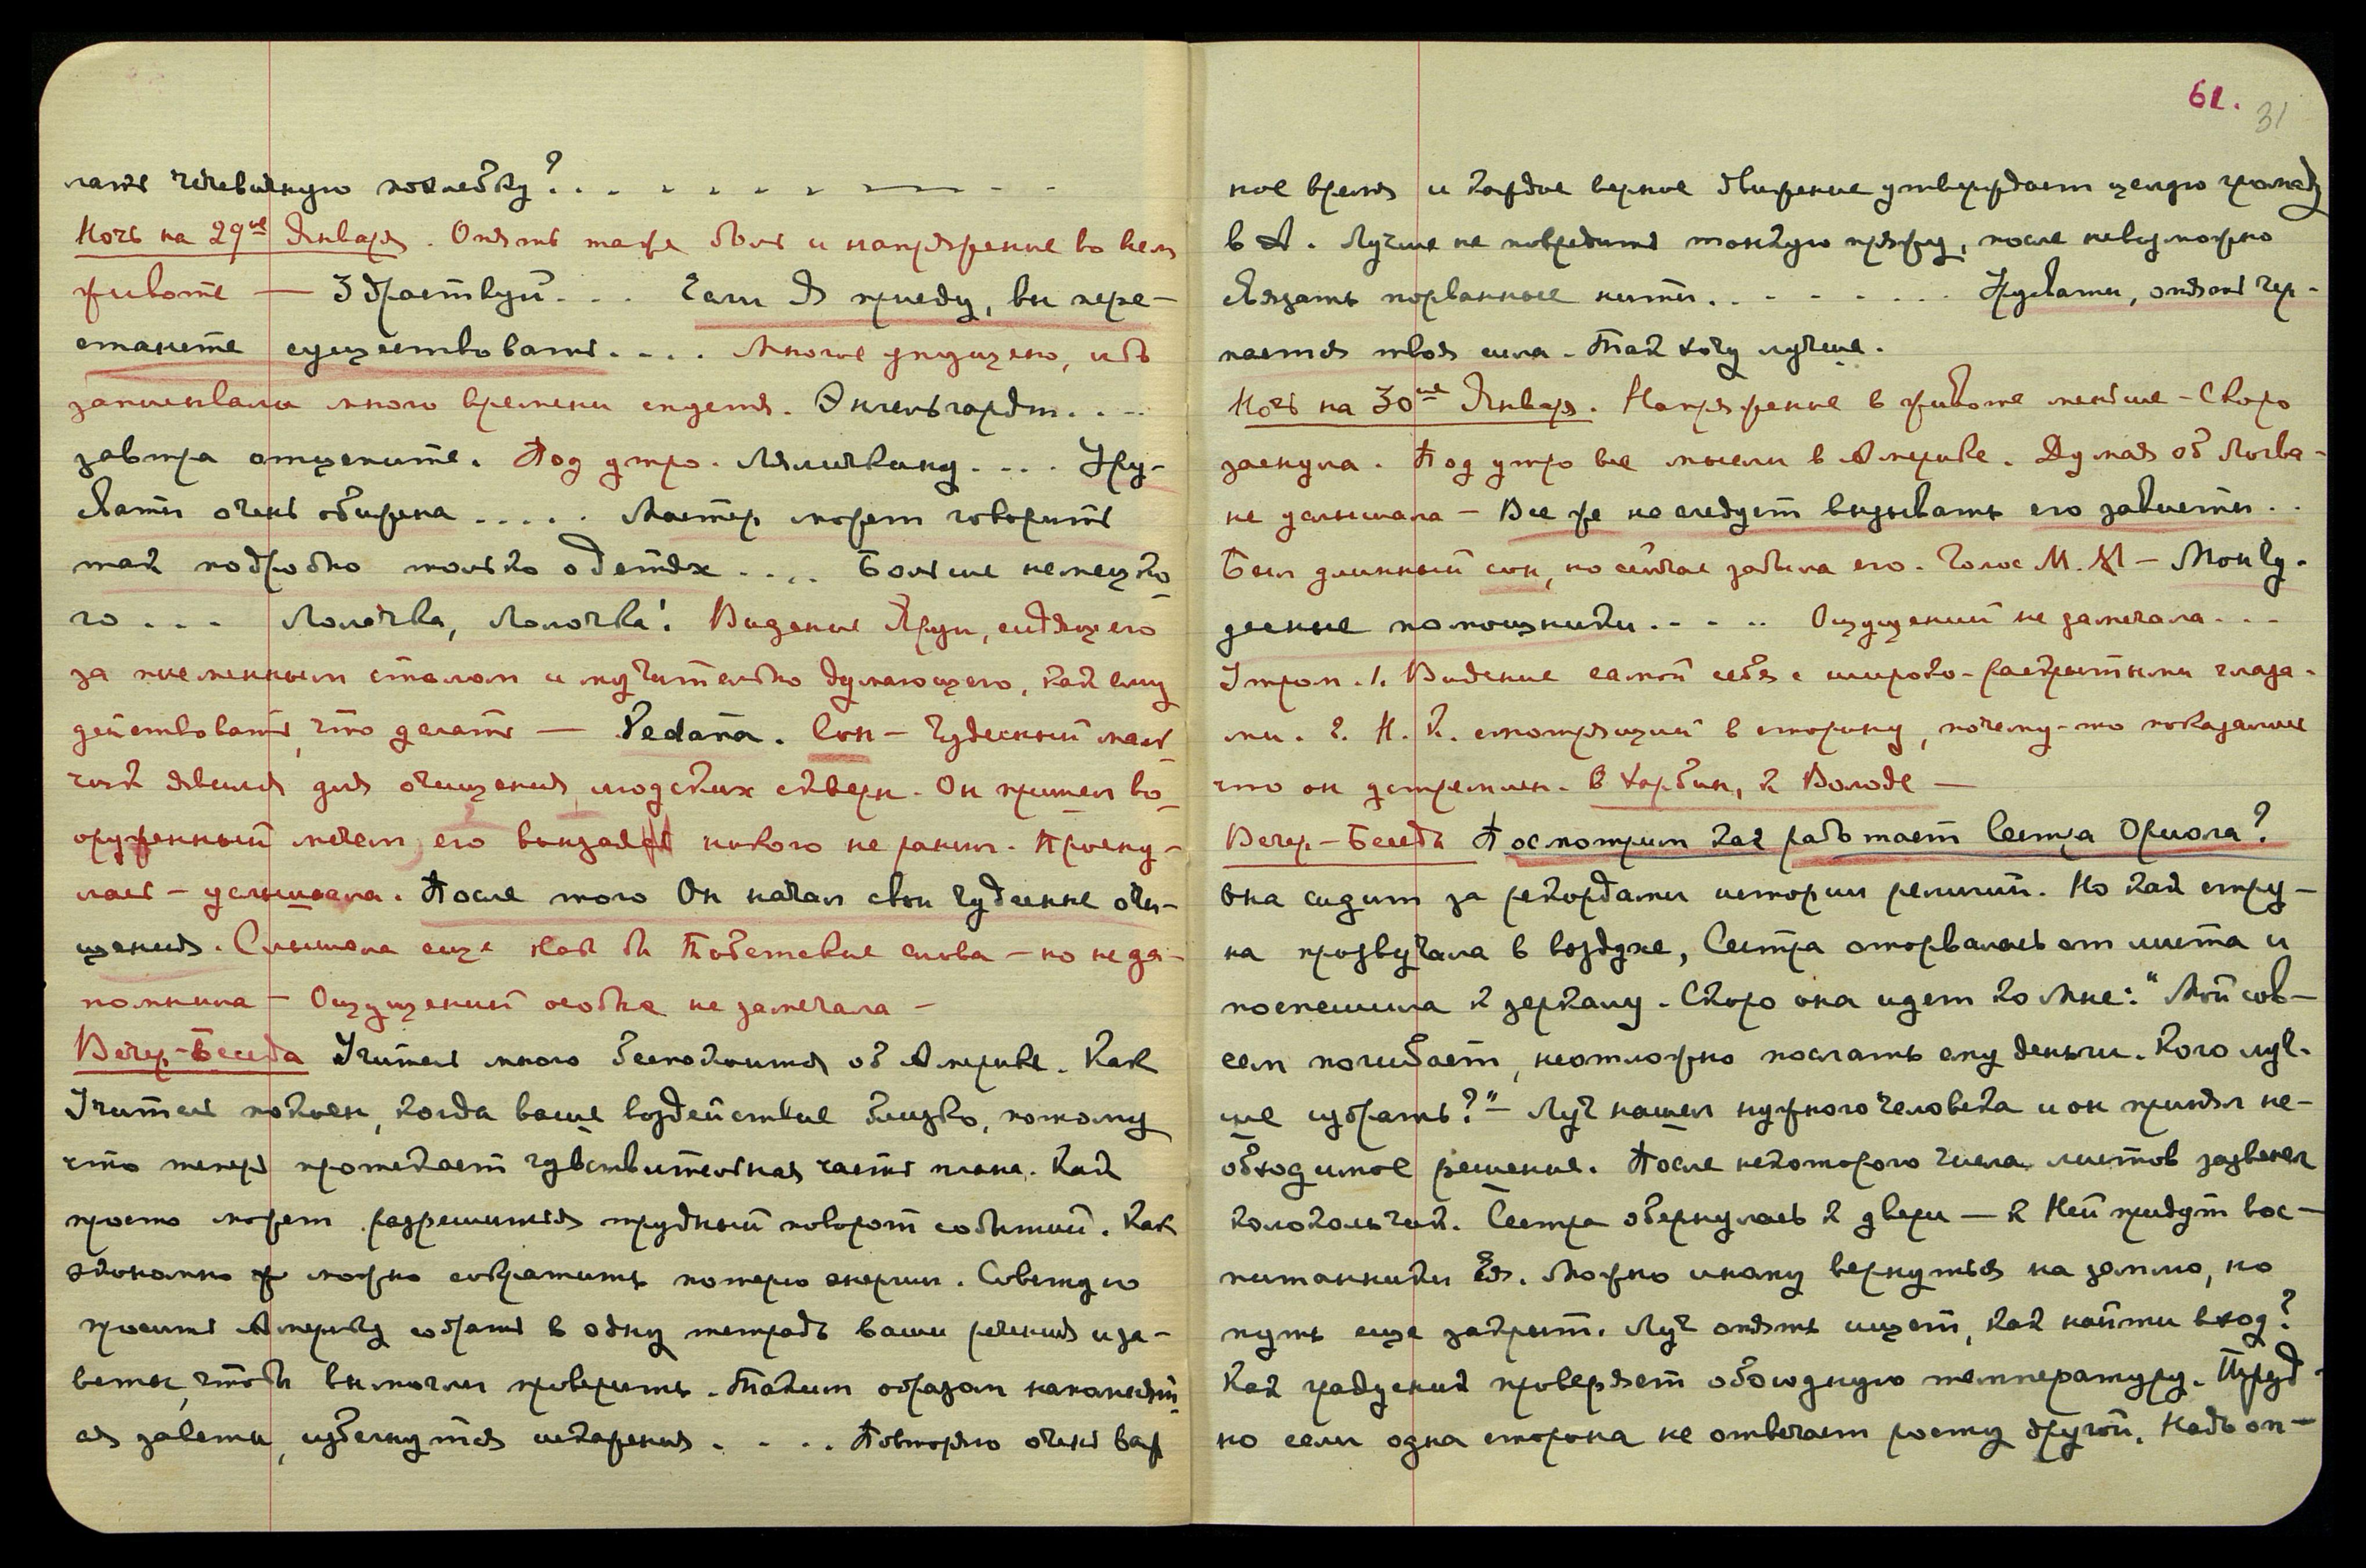 лать чечевичную похлебку? . . . . . . . —— . .
Ночь на 29ое Января. Опять таже боль и напряжение во всем
животе — Здраствуй. . . Если Я приеду, вы пере-
станете существовать. . . . Многое упущено, ибо
записывала много времени спустя. Энгельгардт. . . .
завтра отцепите. Под утро. . . . Уру-
свати очень обижена . . . . . Мастер может говорить
так подробно только о детях . . . . Больше немецко-
го . . . Лолочка, Лолочка! Видение Яруи, сидящего
за письменным столом и мучительно думающего, как ему
действовать, что делать — Pedana. Сон — Чудесный маль-
чик явился для очищения людских скверн. Он пришел во-
оруженный мечем, его никого не ранил. Просну-
лась — услышала. После того Он начал свои чудесные очи-
щения. Слышала еще как бы Тибетские слова — но не за-
помнила — Ощущений особых не замечала —
Вечер-Беседа Учитель много беспокоится об Америке. Как
Учитель покоен, когда ваше воздействие близко, потому
что теперь протекает чувствительная часть плана. Как
просто может разрешиться трудный поворот событий. Как
экономно можно сократить потерю энергии. Советую
просить Америку собрать в одну тетрадь ваши речения и за-
веты, чтобы вы могли проверить. Таким образом напомнят-
ся заветы, избегнутся искажения . . . . Повторяю очень важ
61. 31
ное время и каждое верное движение утверждает целую громаду
в А. Лучше не повредить тонкую пряжу, после невозможно
связать порванные нити. . . . . . . . . Урусвати, опять чер-
пается твоя сила. Так хочу лучше.
Ночь на 30ое Января. Напряжение в животе меньше — Скоро
заснула. Под утро все мысли в Америке. Думая об Логва-
не услышала — Все же не следует вызывать его зависти . .
Был длинный сон, но сейчас забыла его. Голос М. М — Мои чу-
десные помощники . . . . . Ощущений не замечала . . .
Утром. 1. Видение самой себя с широко-раскрытыми глаза-
ми. 2. Н. К. смотрящий в сторону, почему-то показалось
что он устремлен. в Харбин, к Володе —
Вечер-Беседа Посмотрим как работает Сестра Ориола?
Она сидит за рекордами истории религий. Но как стру-
на прозвучала в воздухе, Сестра оторвалась от листа и
поспешила к зеркалу. Скоро она идет ко Мне: "Мой сов-
сем погибает, неотложно послать ему деньги. Кого луч-
ше избрать?" — Луч нашел нужного человека и он принял не-
обходимое решение. После некоторого числа листов зазвенел
колокольчик. Сестра обернулась к двери — к Ней придут вос-
питанники Ея. Можно иному вернуться на землю, но
путь еще закрыт. Луч опять ищет, как найти вход?
Как градусник проверяет обоюдную температуру. Труд-
но если одна сторона не отвечает росту другой. Надо оп-